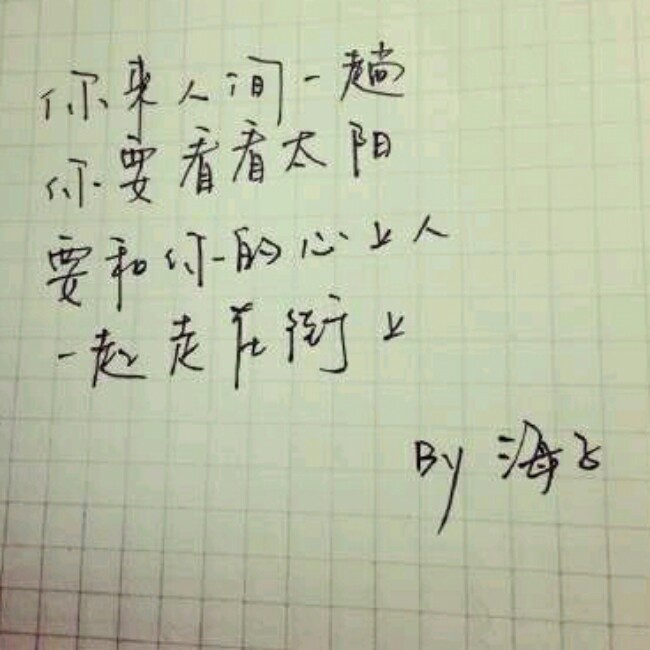 你来人间一趟
你要看看太阳
要和你的心上人
一起走在街上
By 海子